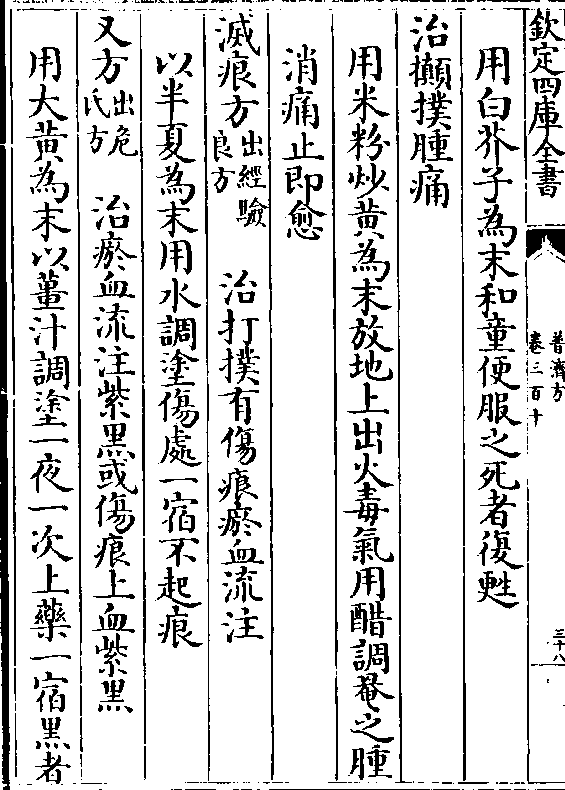 欽定四庫全書
普濟方
卷三百十
三十八
用白芥子為末和童便服之死者復甦
治攧撲腫痛
用米粉炒黃為末放地上出火毒氣用醋調菴之腫
消痛止即愈
滅痕方出經驗良方 治打撲有傷痕瘀血流注
以半夏為末用水調塗傷處一宿不起痕
又方出危氏方 治瘀血流注紫黑或傷痕上血紫黑
用大黃為末以薑汁調塗一夜一次上藥一宿黑者